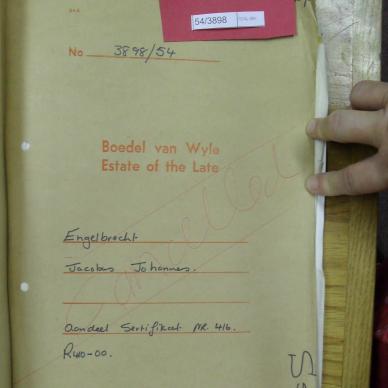 54/3898
No 3898/54
Boedel van Wyle
Estate of the Late
Cancelled
Engelbrecht
Jacobus Johannes.
Aandeel Sertifikaat NR. 416.
R40-00.